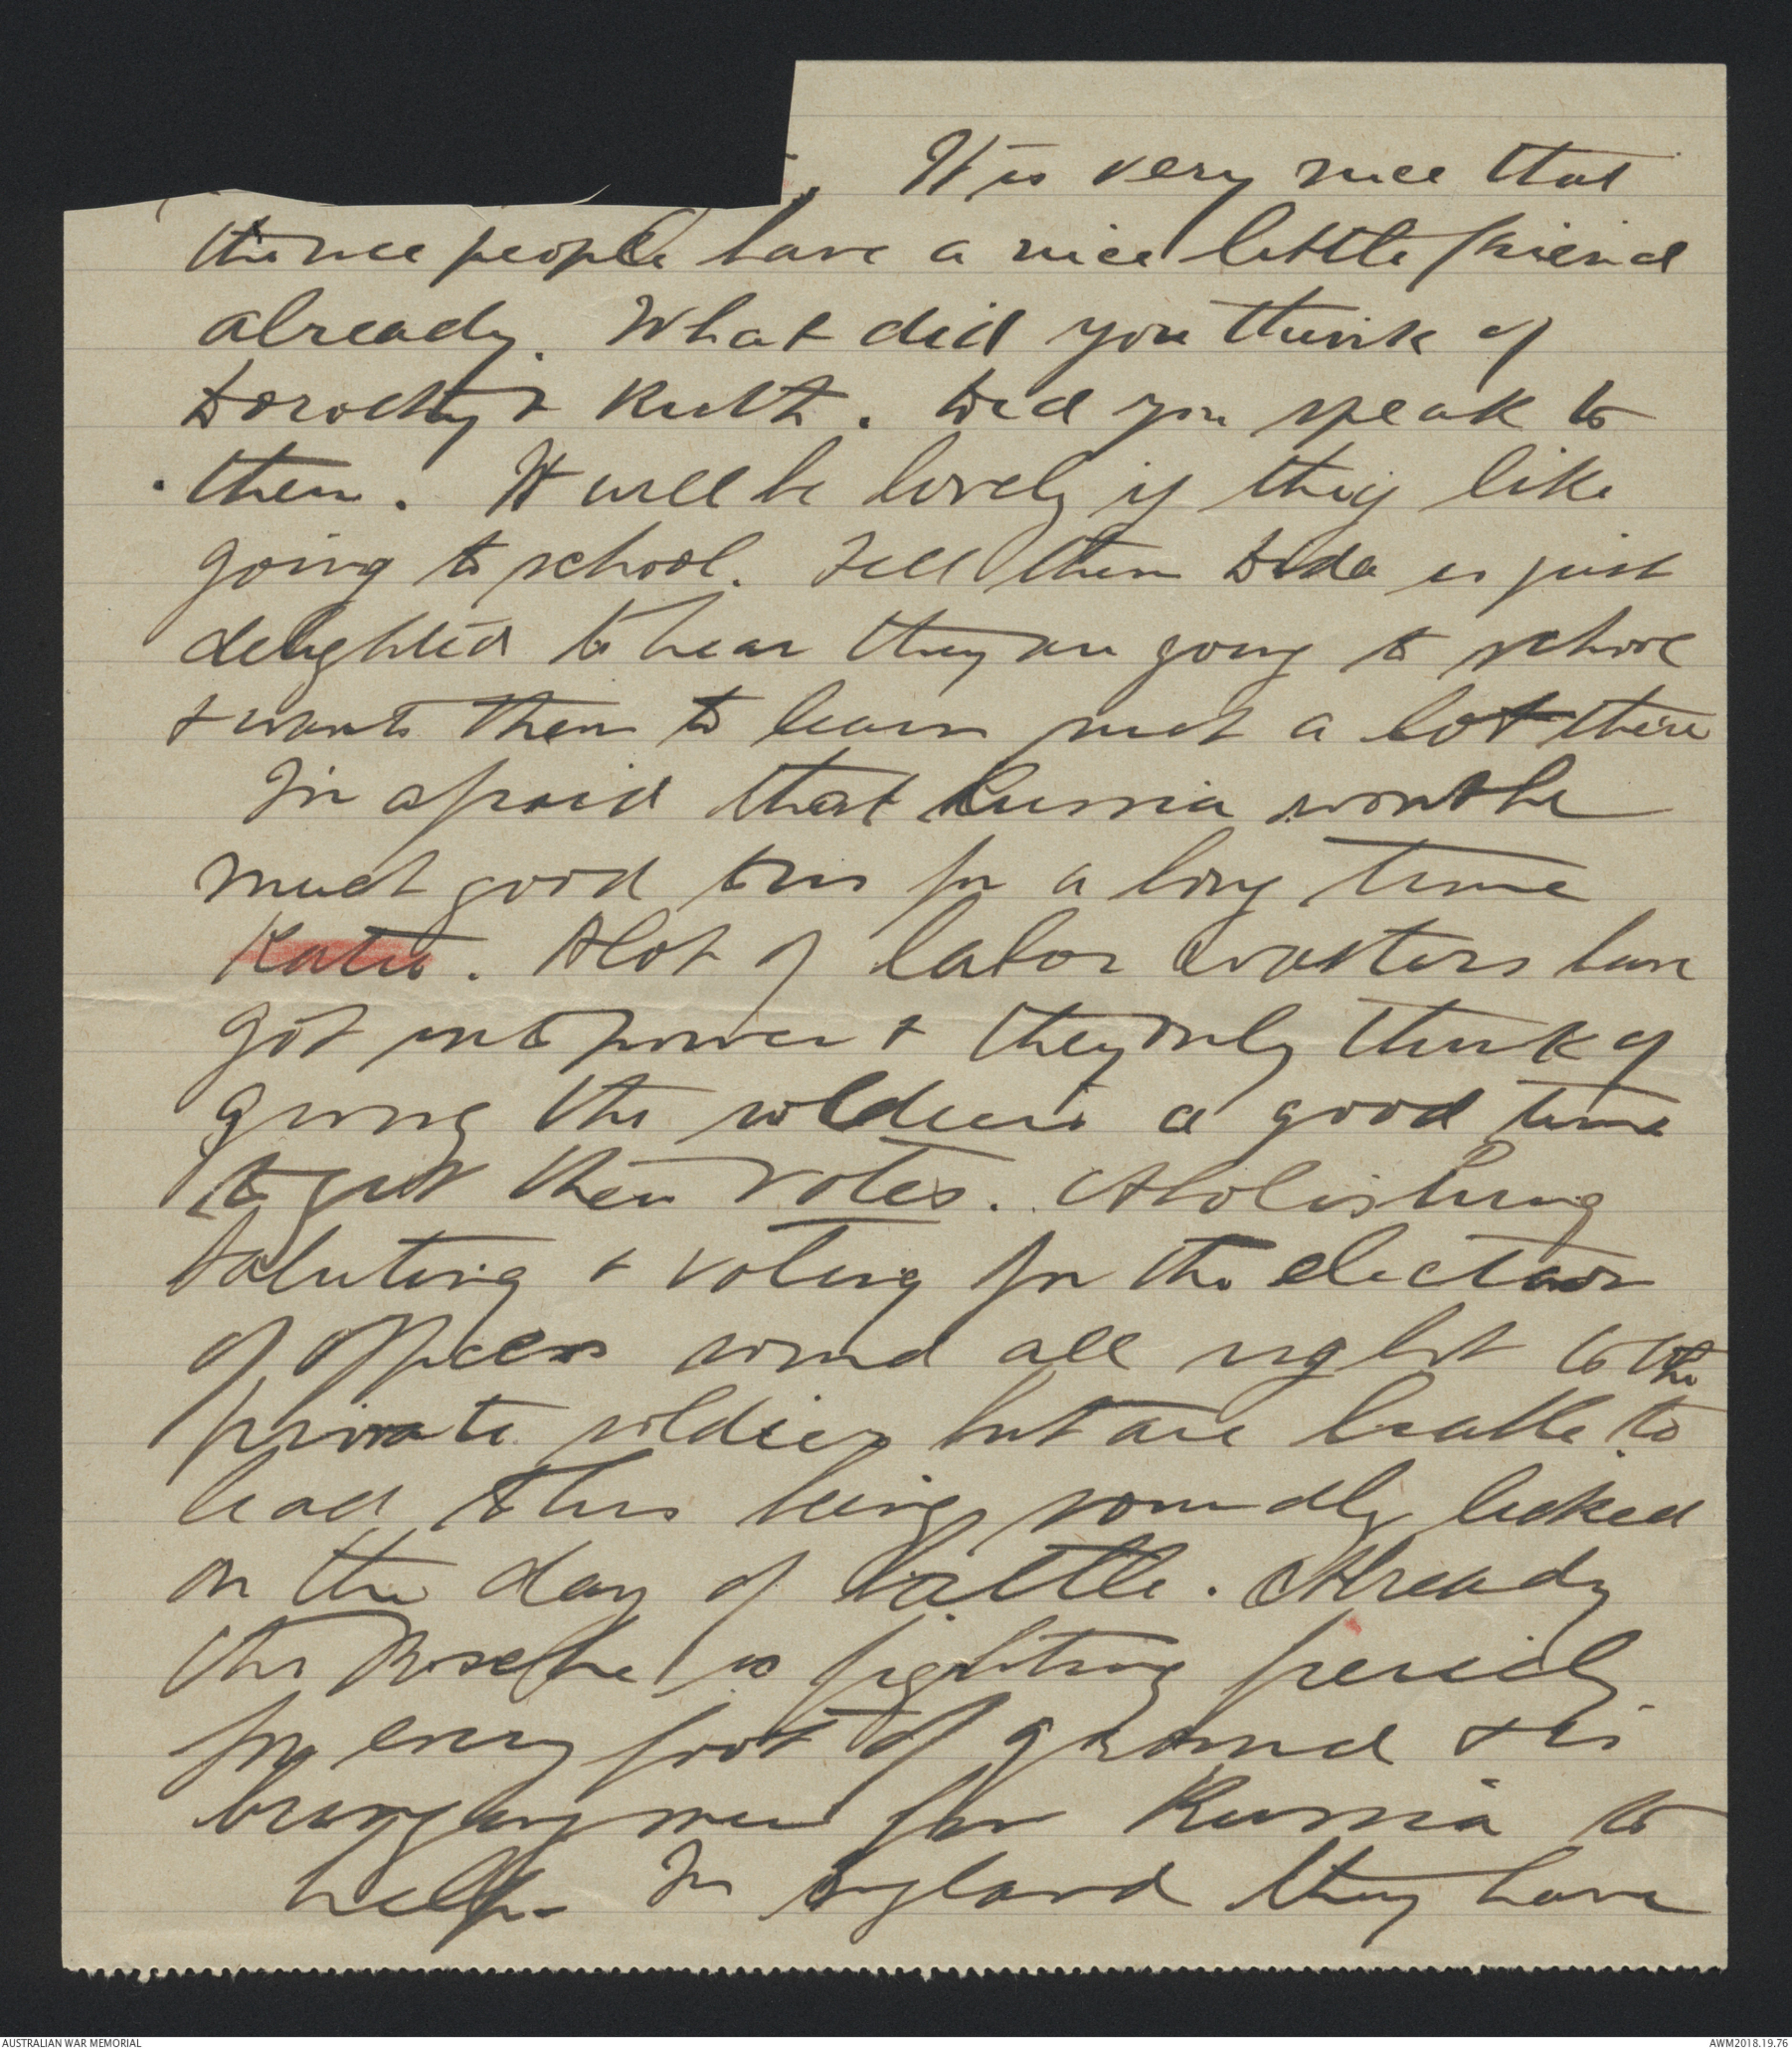 It is very nice that
the wee people have a nice little friend
already. What did you think of
Dorothy & Ruth. Did you speak to
them. It will be lovely if they like
going to school. Tell them Dida is just
delighted to hear they are going to school
& wants them to learn such a lot there
I'm afraid that Russia wont be
much good to us for a long time
Katie. A lot of labor wasters have
got into power & they only think of
giving the soldiers a good time
to get their votes. Abolishing
saluting & voting for the election
of officers sound all right to the
private soldier but are liable to
lead to his being soundly licked
on the day of battle. Already
the Bosche is fighting fiercely
for every foot of ground & is
bringing men from Russia to
help. In England they have
AUSTRALIAN WAR MEMORIAL
AWM2018.19.76